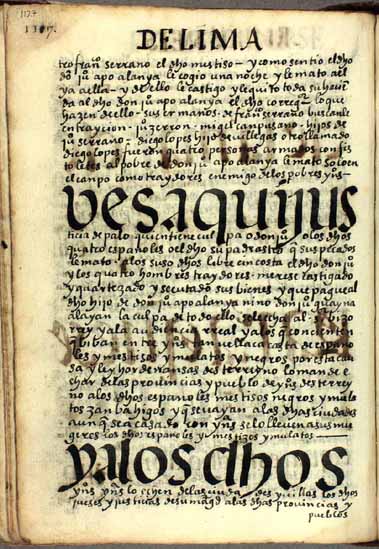 1127
1117.
DE LIMA
tro franco serrano el dho mustiso - y como sentio el dho
don juo apo alanya le cogio una noche y le mato a el
y a ella - y de ello le castigo y le quito toda su hazien
da al dho don juo apo alanya el dho correxor lo que
hazen de ello - sus ermanos de franco serrano buscanle
en traycion - juo serron - miguel canpusano - hijos de
juo serrano - diego lopes hijo de uillegas otro llamado
diego lopes fueron quatro personas armados con pis
toletes al pobre de don juo apo alanya le mato solo en
el canpo como traydores enemigo de los pobres ys -
VES AQVI JUS
ticia de palo quien tiene culpa o don juo o los dhos
quatro españoles o el dho su padrastro q sus pecados
le mato a los susodhos libre en costa el dho don juo
y los quatro hombres traydores merese castigado
y quartezado y secutado sus bienes y que pague al
dho hijo de don juo apo alanya nino don juo guayna
alaya la culpa de todo ello se le echa al
rrey y a la audiencia rreal
q biban entre yos tan uellaca casta de españo
les y mestisos y mulatos y negros por esta cau
sa y ley hordenansas des terreno lo mande e
char de las prouincias y pueblo de yos des terre
no a los dhos españoles mestisos negros y mula
tos zanbahigos y q se uayan a las dhas ciudades
aunq sea casado con yns se lo lleuen a sus mu
geres los dhos españoles y mestizos y mulatos
Y A LOS DHOS
yos yns lo echen de las ciudades y uillas los dhos
jueses y justicias de su magd a las dhas prouincias y
pueblos